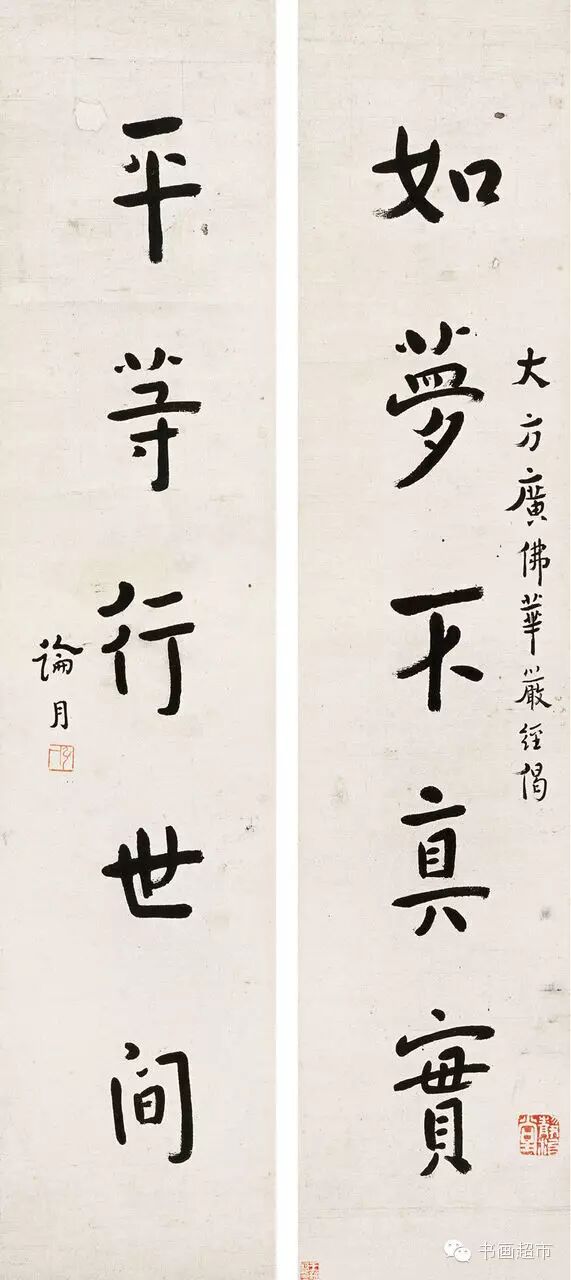 大方廣佛華嚴經偈
如夢不真實
平等行世間
論月
书画超市